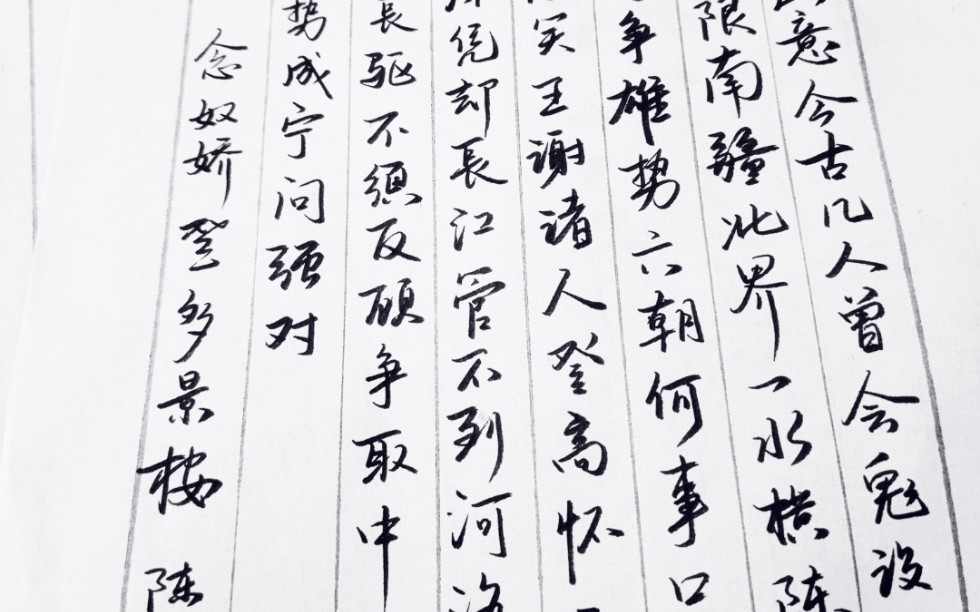 意今古几人曾会鬼设
限南疆北界一水横陈
争雄势六朝何事
笑王谢诸人登高怀
凭却長江管不到河洛
長驱不须反顾争取中
势成宁问强对
念奴娇登多景楼 陈